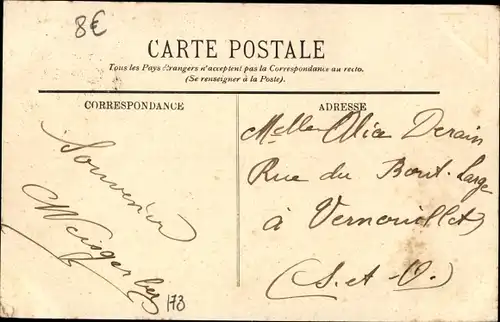 8€
CARTE POSTALE
Tous les Pays étrangers n'acceptent pas la Correspondance au recto.
(Se renseigner à la Poste).
CORRESPONDANCE
ADRESSE
Souvenir
Weisgerber
173
Melle Alice Derain
Rue du Bout Large
à Vernouillet
(S. et O.)